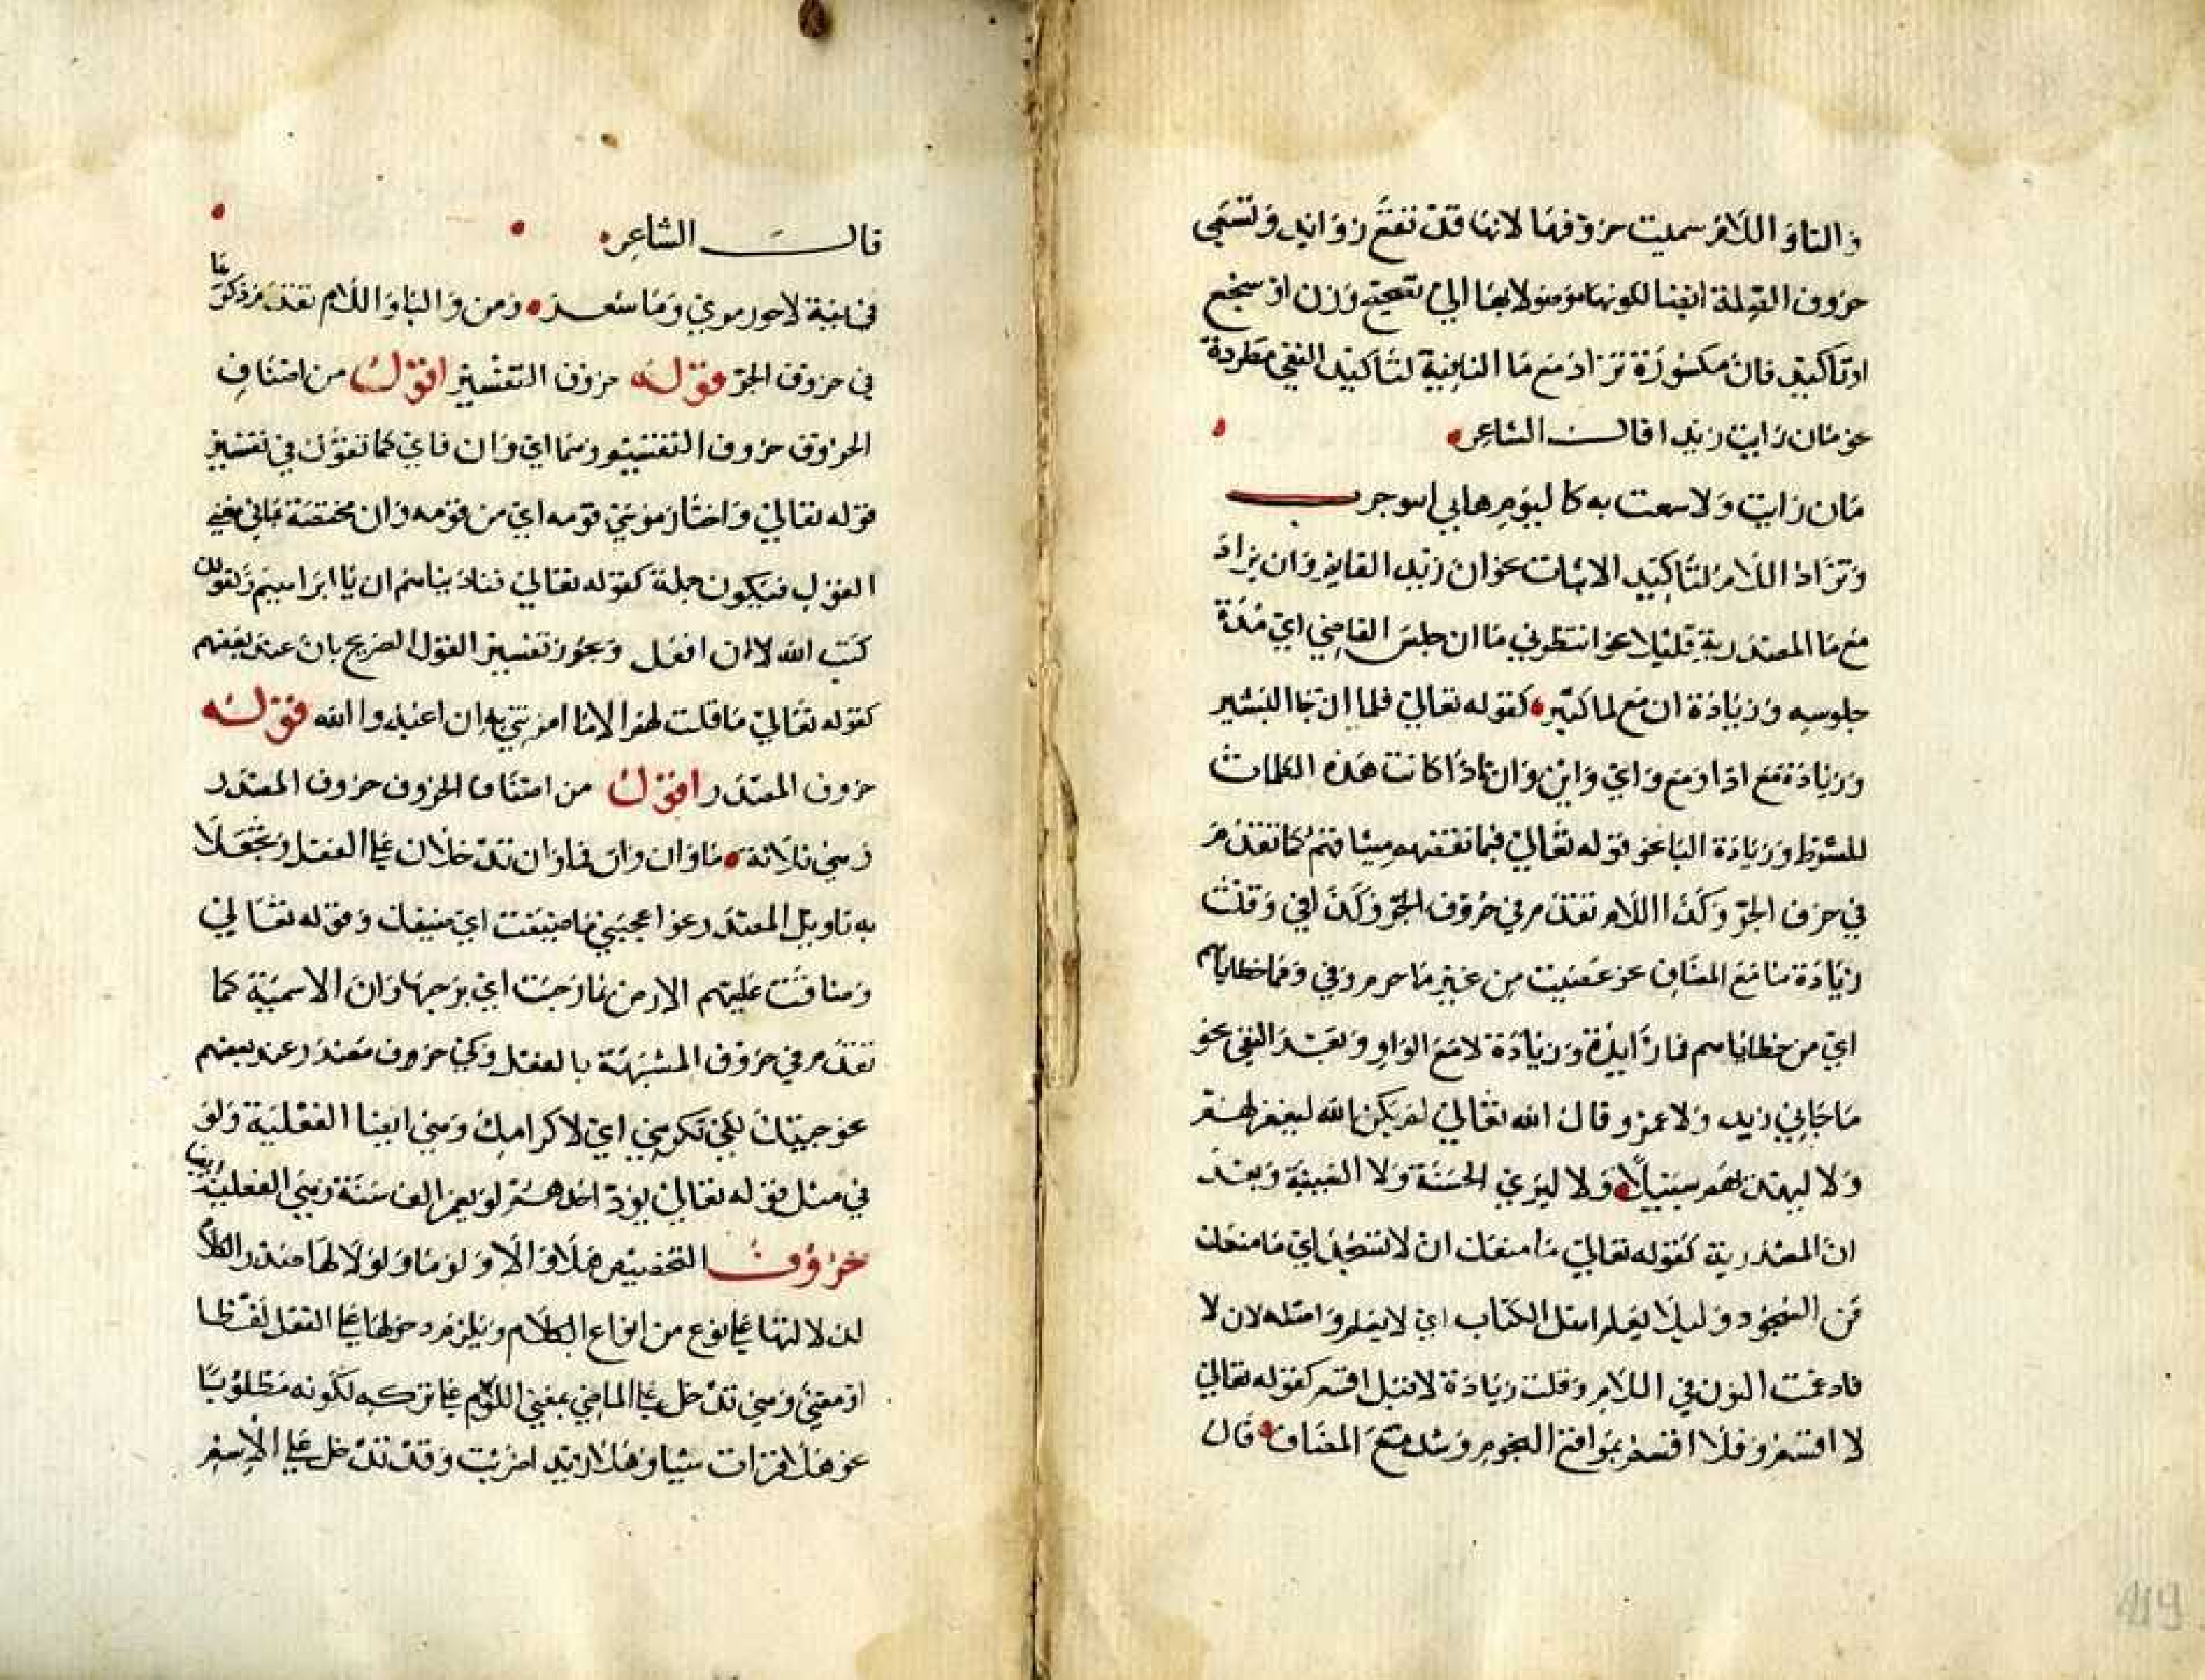 والباو اللام سميت حروفها لانها قد تقع زوايد وتسمى
حروف الصلة ايضا لكونها موصولا بها الي تصحيح وزن او سجع
او تاكيد فان مكسورة تزاد مع ما النافية لتاكيد النفي مطردة
نحو مان رايت زيدا قالـــ الشاعر
مان رايت ولا سمعت به كاليوم هاني اسو جربـــ
وتزاد اللام لتاكيد الاثبات نحو ان زيد القايم وان يزاد
مع ما المصدرية قليلا نحو انتظرني ما ان جلس القاضي اي مدة
جلوسه وزيادة ان مع لما كثير كقوله تعالي فلما ان جا البشير
وزيادة مع اذا ومع واي واين وان اذا كانت هذه الكلمات
للشرط وزيادة البا نحو قوله تعالي فبما نقضهم ميثاقهم كما تقدم
في حرف الجر وكذا اللام تقدم في حروف الجر وكذا في وقلت
زيادة ما مع المضاف نحو غضبت من غير ما جرم وفي ومما خطاياهم
اي من خطاياهم فما زايدة وزيادة لا مع الواو وبعد النفي نحو
ما جاني زيد ولا عمرو قال الله تعالي لم يكن الله ليغفر لهم
ولا ليهديهم سبيلا ولا تستوي الحسنة ولا السيية وبعد
ان المصدرية كقوله تعالي ما منعك ان لا تسجد اي ما منعك
من السجود وليلا يعلم اهل الكتاب اي لا يعلم واصله لان لا
فادغمت النون في اللام وقلت زيادة لا قبل اقسم كقوله تعالي
لا اقسم وفلا اقسم بمواقع النجوم وشذ مع المضاف قال
قالـــ الشاعر
في بئر لا حور سري وما شعر ومن والبا واللام تقدم ذكرها
في حروف الجر قوله حروف التفسير اقول من اصناف
الحروف حروف التفسير وهما اي وان فاي كما تقول في تفسير
قوله تعالي واختار موسي قومه اي من قومه وان مختصة بما في معني
القول فيكون جملة كقوله تعالي فناديناهم ان يا ابراهيم وتقول
كتب الله لا ان افعل ويجوز تفسير القول الصريح بان عند بعضهم
كقوله تعالي ما قلت لهم الا ما امرتني به ان اعبدوا الله قوله
حروف المصدر اقول من اصناف الحروف حروف المصدر
وهي ثلاثة ما وان وان فما وان تدخلان علي الفعل وتجعلا
به تاويل المصدر نحو اعجبني ما صنعت اي صنيعك وقوله تعالي
وضاقت عليهم الارض بما رحبت اي برحبها وان الاسمية كما
تقدم في حروف المشبهة بالفعل وكي حروف مصدر عند بعضهم
نحو جيتك لكي تكرمني اي لاكرامك وهي ايضا الفعلية ولو
في مثل قوله تعالي يود احدهم لو يعمر الف سنة وهي الفعلية ايضا
حروف التحضيض هلا والا ولوما ولولا لها صدر الكلام
لدلالتها علي نوع من انواع الكلام ويلزم دخولها علي الفعل لفظا
او معني وهي تدخل علي الماضي بمعني اللوم علي تركه لكونه مطلوبا
نحو هلا قرات شيا وهلا زيد اضربت وقد تدخل علي الاسم